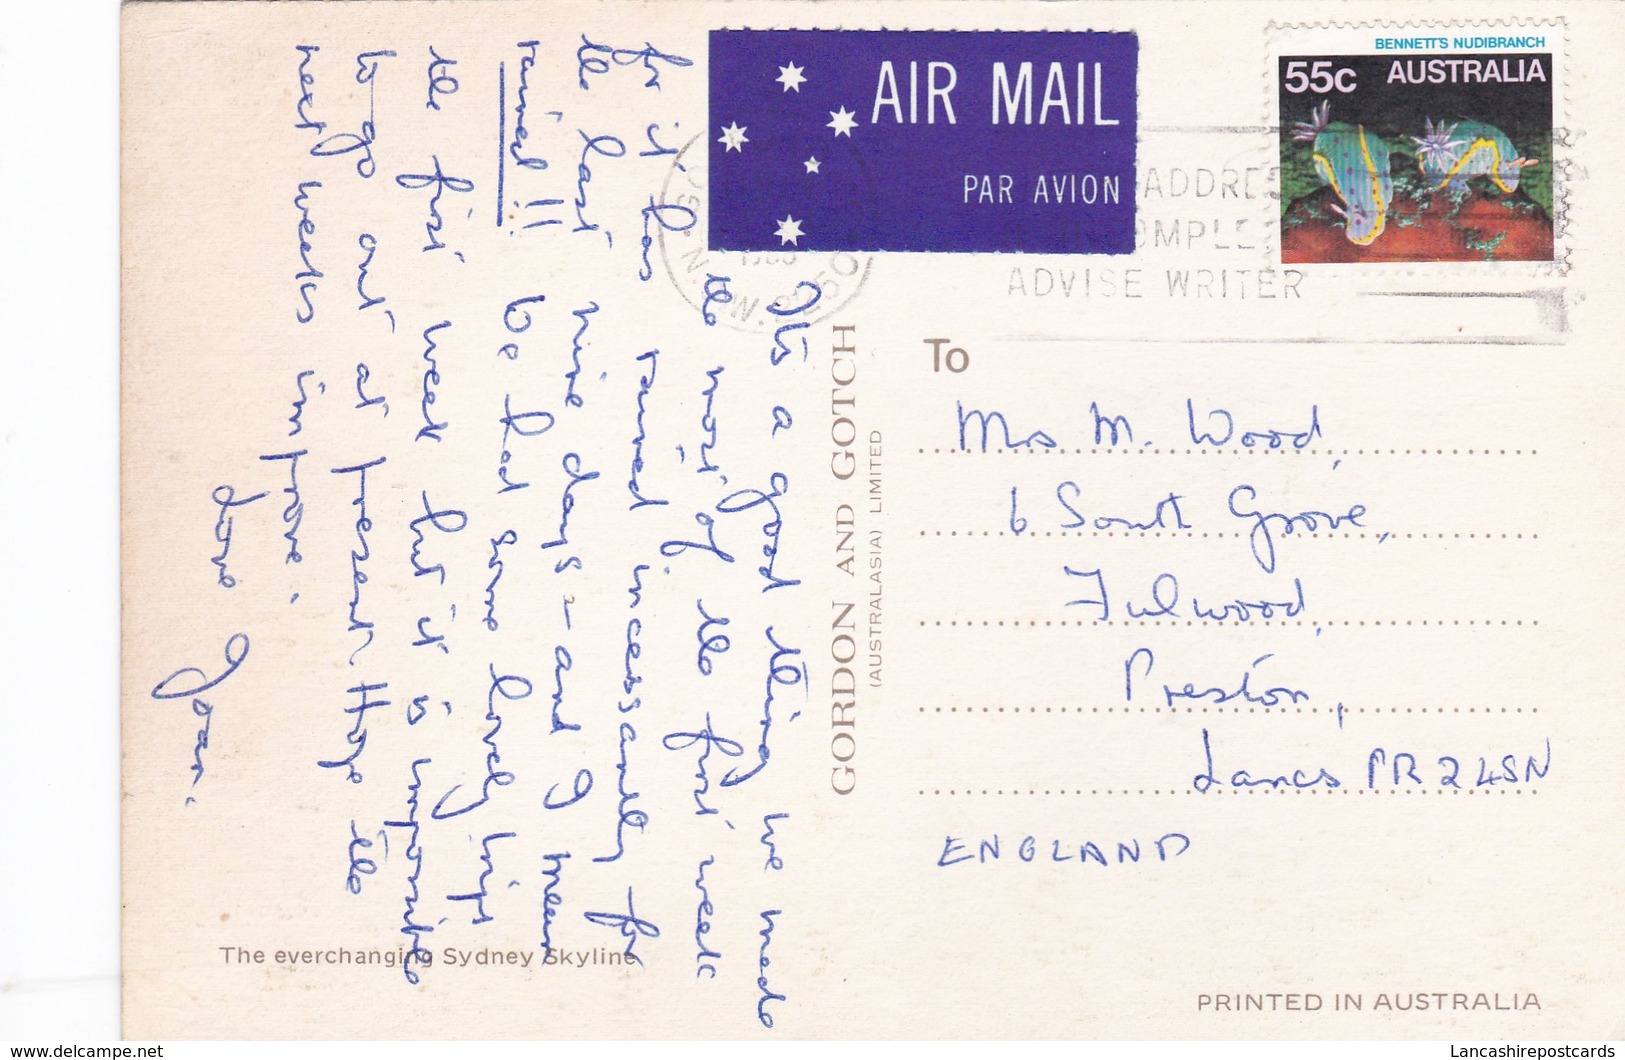 It's a good thing we made
the most of the first week
for it has rained incessantly for
the last nine days - and I mean
rained!! We had some lovely trips
the first week but it is impossible
to go out at present. Hope the
next weeks improve.
Love Joan.
The everchanging Sydney Skyline
GORDON AND GOTCH
(AUSTRALASIA) LIMITED
AIR MAIL
PAR AVION
BENNETT'S NUDIBRANCH
55c AUSTRALIA
ADVISE WRITER
To
Mrs M. Wood,
6 South Grove,
Fulwood,
Preston,
Lancs PR2 4SN
ENGLAND
PRINTED IN AUSTRALIA
www.delcampe.net
Lancashirepostcards